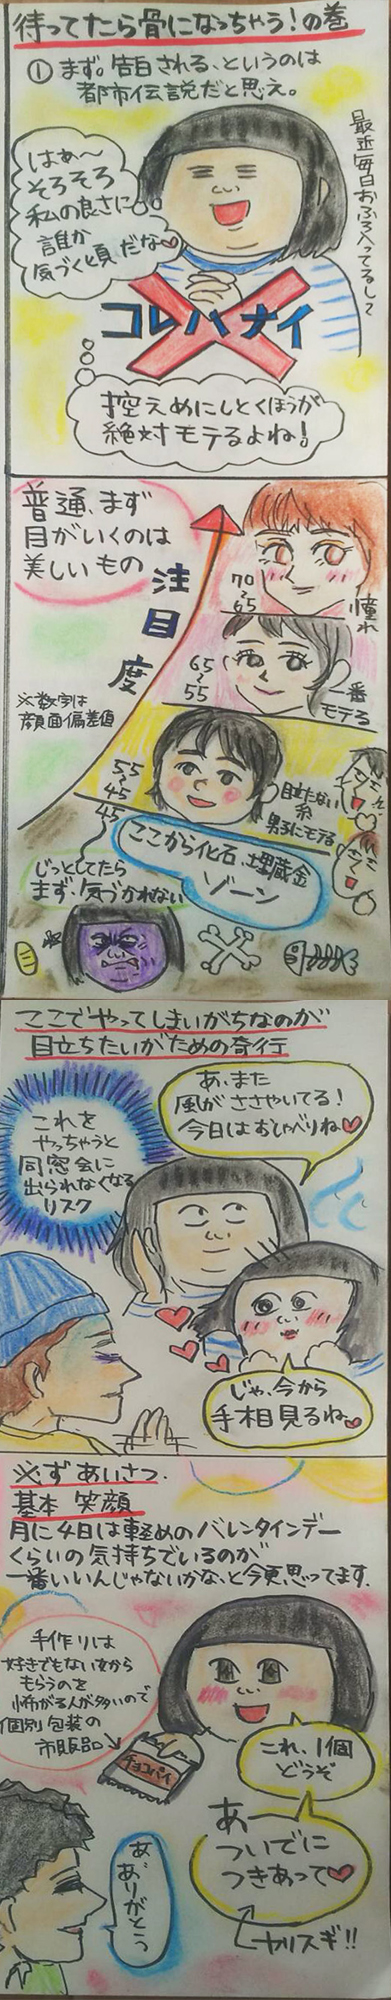 待ってたら骨になっちゃう!の巻
① まず。告白される、というのは
都市伝説だと思え。
はあ〜
そろそろ
私の良さに
誰か
気づく頃だな♥
最近毎日おふろ入ってるしって
コレハナイ
控えめにしとくほうが
絶対モテるよね!
普通、まず
目がいくのは
美しいもの
注目度
※数字は
顔面偏差値
70
〜
65
憧れ
65
〜
55
一番
モテる
55
〜
45
目立たない
系
男子にモテる
45
ここから化石、埋蔵金
ゾーン
じっとしてたら
まず、気づかれない
ここでやってしまいがちなのが
目立ちたいがための奇行
あ、また
風がささやいてる!
今日はおしゃべりね♥
これを
やっちゃうと
同窓会に
出られなくなる
リスク
じゃ、今から
手相見るね♥
必ずあいさつ.
基本 笑顔
月に4日は軽めのバレンタインデー
くらいの気持ちでいるのが
一番いいんじゃないかな、と今更思ってます.
手作りは
好きでもない女から
もらうのを
怖がる人が多いので
個別包装の
市販品
チョコパイ
これ、1個
どうぞ
あー
ついでに
つきあって♥
ヤリスギ!!
あ、
ありがとう